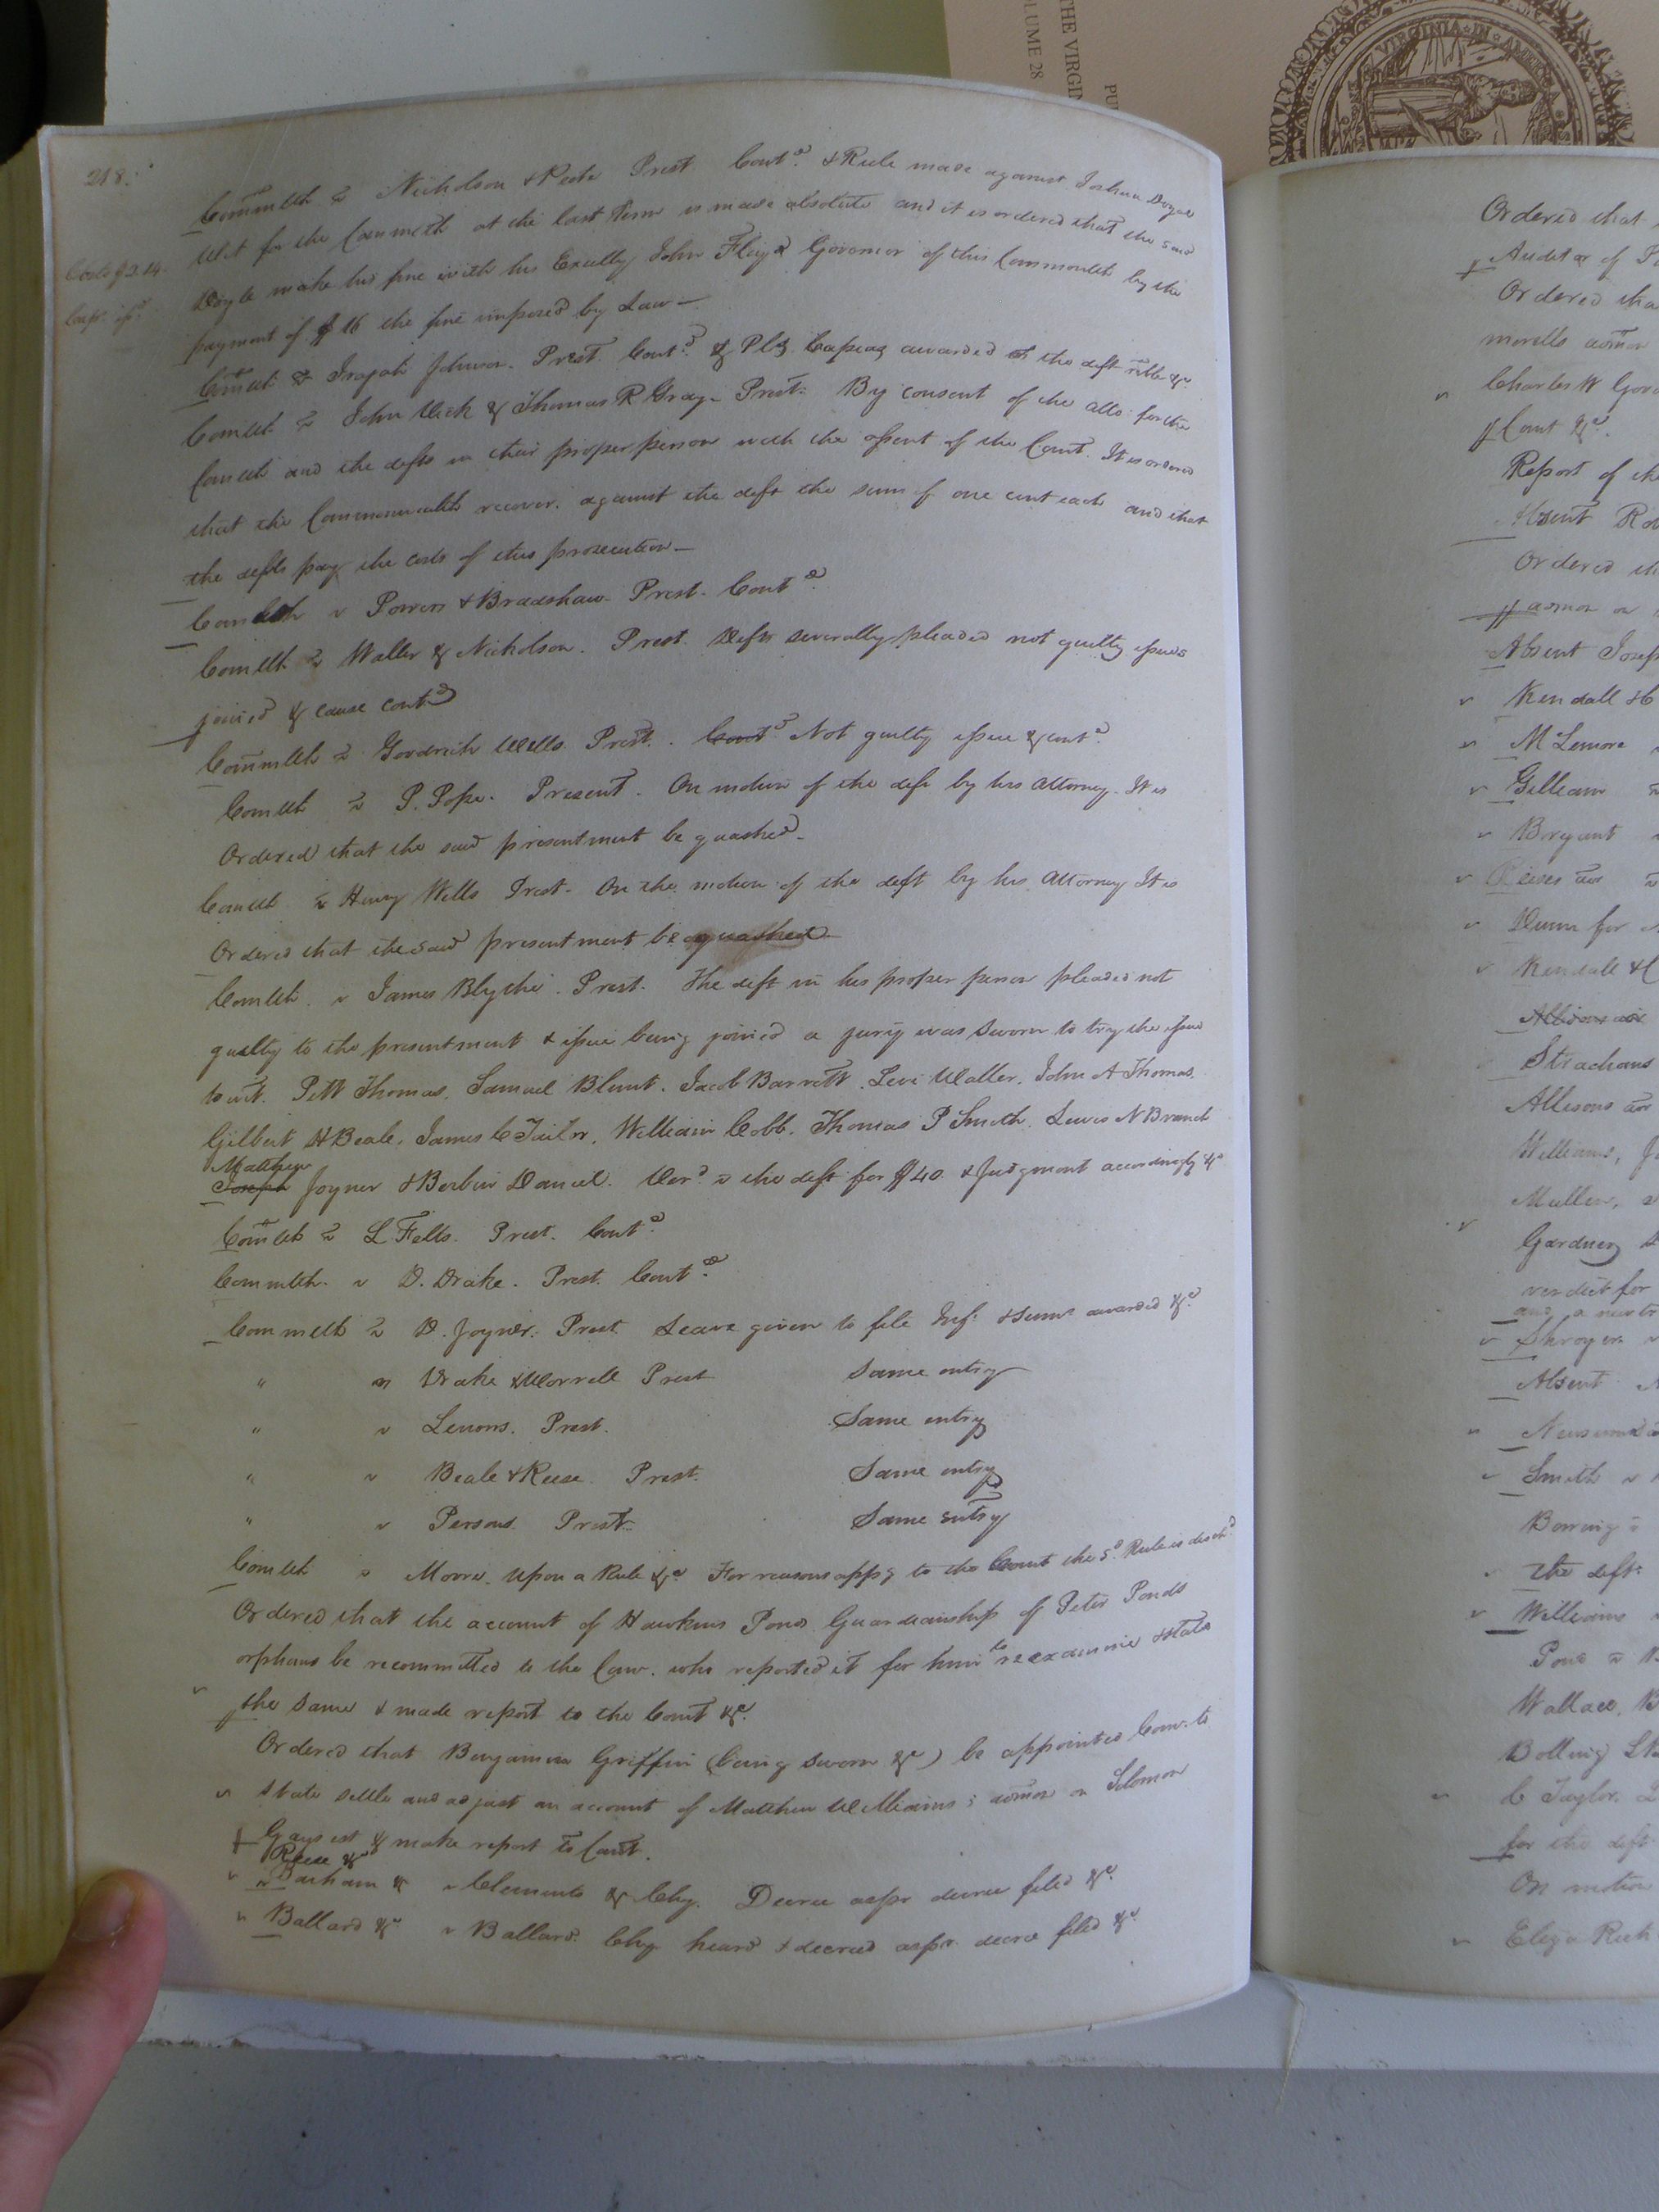 THE VIRGIN
OLUME 28
PU
VIRGINIA IN
218.
Commlth vs Nicholson & Peete Prest. Contd. & Rule made against Joshua Doyal
Wit for the Commth at the last Term is made absolute and it is ordered that the said
Costs $2.14
Doyle make his fine with his Excelly John Floyd Governor of this Commonlth by the
payment of $16 the fine imposed by Law —
Comlth vs Johnson. Prest. Contd. & Pls Capias awarded vs the deft &c
Comlth vs John Vick & Thomas R Gray. Prest. By consent of the atto: for the
Comlth and the defts in their proper person with the assent of the Court. It is ordered
that the Commonwealth recover. against the deft the sum of one cent each and that
the defts pay the costs of this prosecution —
Comlth v Powers & Bradshaw Prest. Contd
Comlth vs Waller & Nicholson. Prest. Defts severally pleaded not guilty issues
joined & cause contd
Commlth vs Goodrich Wells Prest. Contd Not guilty issue & contd.
Comlth vs P. Pope. Present. On motion of the deft by his attorney. It is
Ordered that the said presentment be quashed.
Comlth vs Henry Wells Prest. On the motion of the deft by his Attorney It is
Ordered that the said presentment be quashed —
Comlth. v James Blythe. Prest. The deft in his proper person pleaded not
guilty to the presentment & issue being joined a jury was sworn to try the issue
to wit. Pitt Thomas, Samuel Blunt. Jacob Barrett. Levi Waller. John A Thomas.
Gilbert W Beale, James C Tailor, William Cobb. Thomas P Smith. Lewis N Branch
Matthew
Joseph Joyner & Daniel. Verd vs the deft for $40 & Judgment accordingly &c
Comlth vs L Felts. Prest. Contd.
Commlth. v D. Drake. Prest. Contd.
Commlth vs D. Joyner. Prest Leave given to file Inf. & Sums awarded &c.
" v Drake & Worrell Prest Same entry
" v Lemons. Prest. Same entry
" v Beale & Reese Prest. Same entry
" v Persons Prest. Same entry
Comlth v Moore. Upon a Rule &c For reasons appg to the Court the sd. Rule is dischd
Ordered that the account of Hawkins Pond Guardianship of Peter Ponds
orphans be recommitted to the Com. who reported it for him to reexamine & state
the same & made report to the Court &c.
Ordered that Benjamin Griffin (being sworn &c) be appointed Com. to
state settle and adjust an account of Matthew Williams's admon on Solomon
Grays est & make report to Court.
Reese &c
Parham & v Clements & Chy. Decree as pr decree filed &c.
Ballard &c v Ballard. Chy heard & decreed as pr decree filed &c.
Ordered that
Auditor of P
Ordered tha
morells admon
Charles W
Cont &c.
Report of the
Absent Ro
Ordered th
admon on
Absent Josep
Kendall & C
M Lemore
Gilliam
Bryant
Dunn for
Kendall & C
Strachans
Allisons adr
Williams, J
Mullen, v
Gardner
verdict for
and a new tr
Shroyer v
Absent
Smith v
the deft
Williams
Pond v
Wallace, B
Bolling
C Taylor.
for the deft
On motion